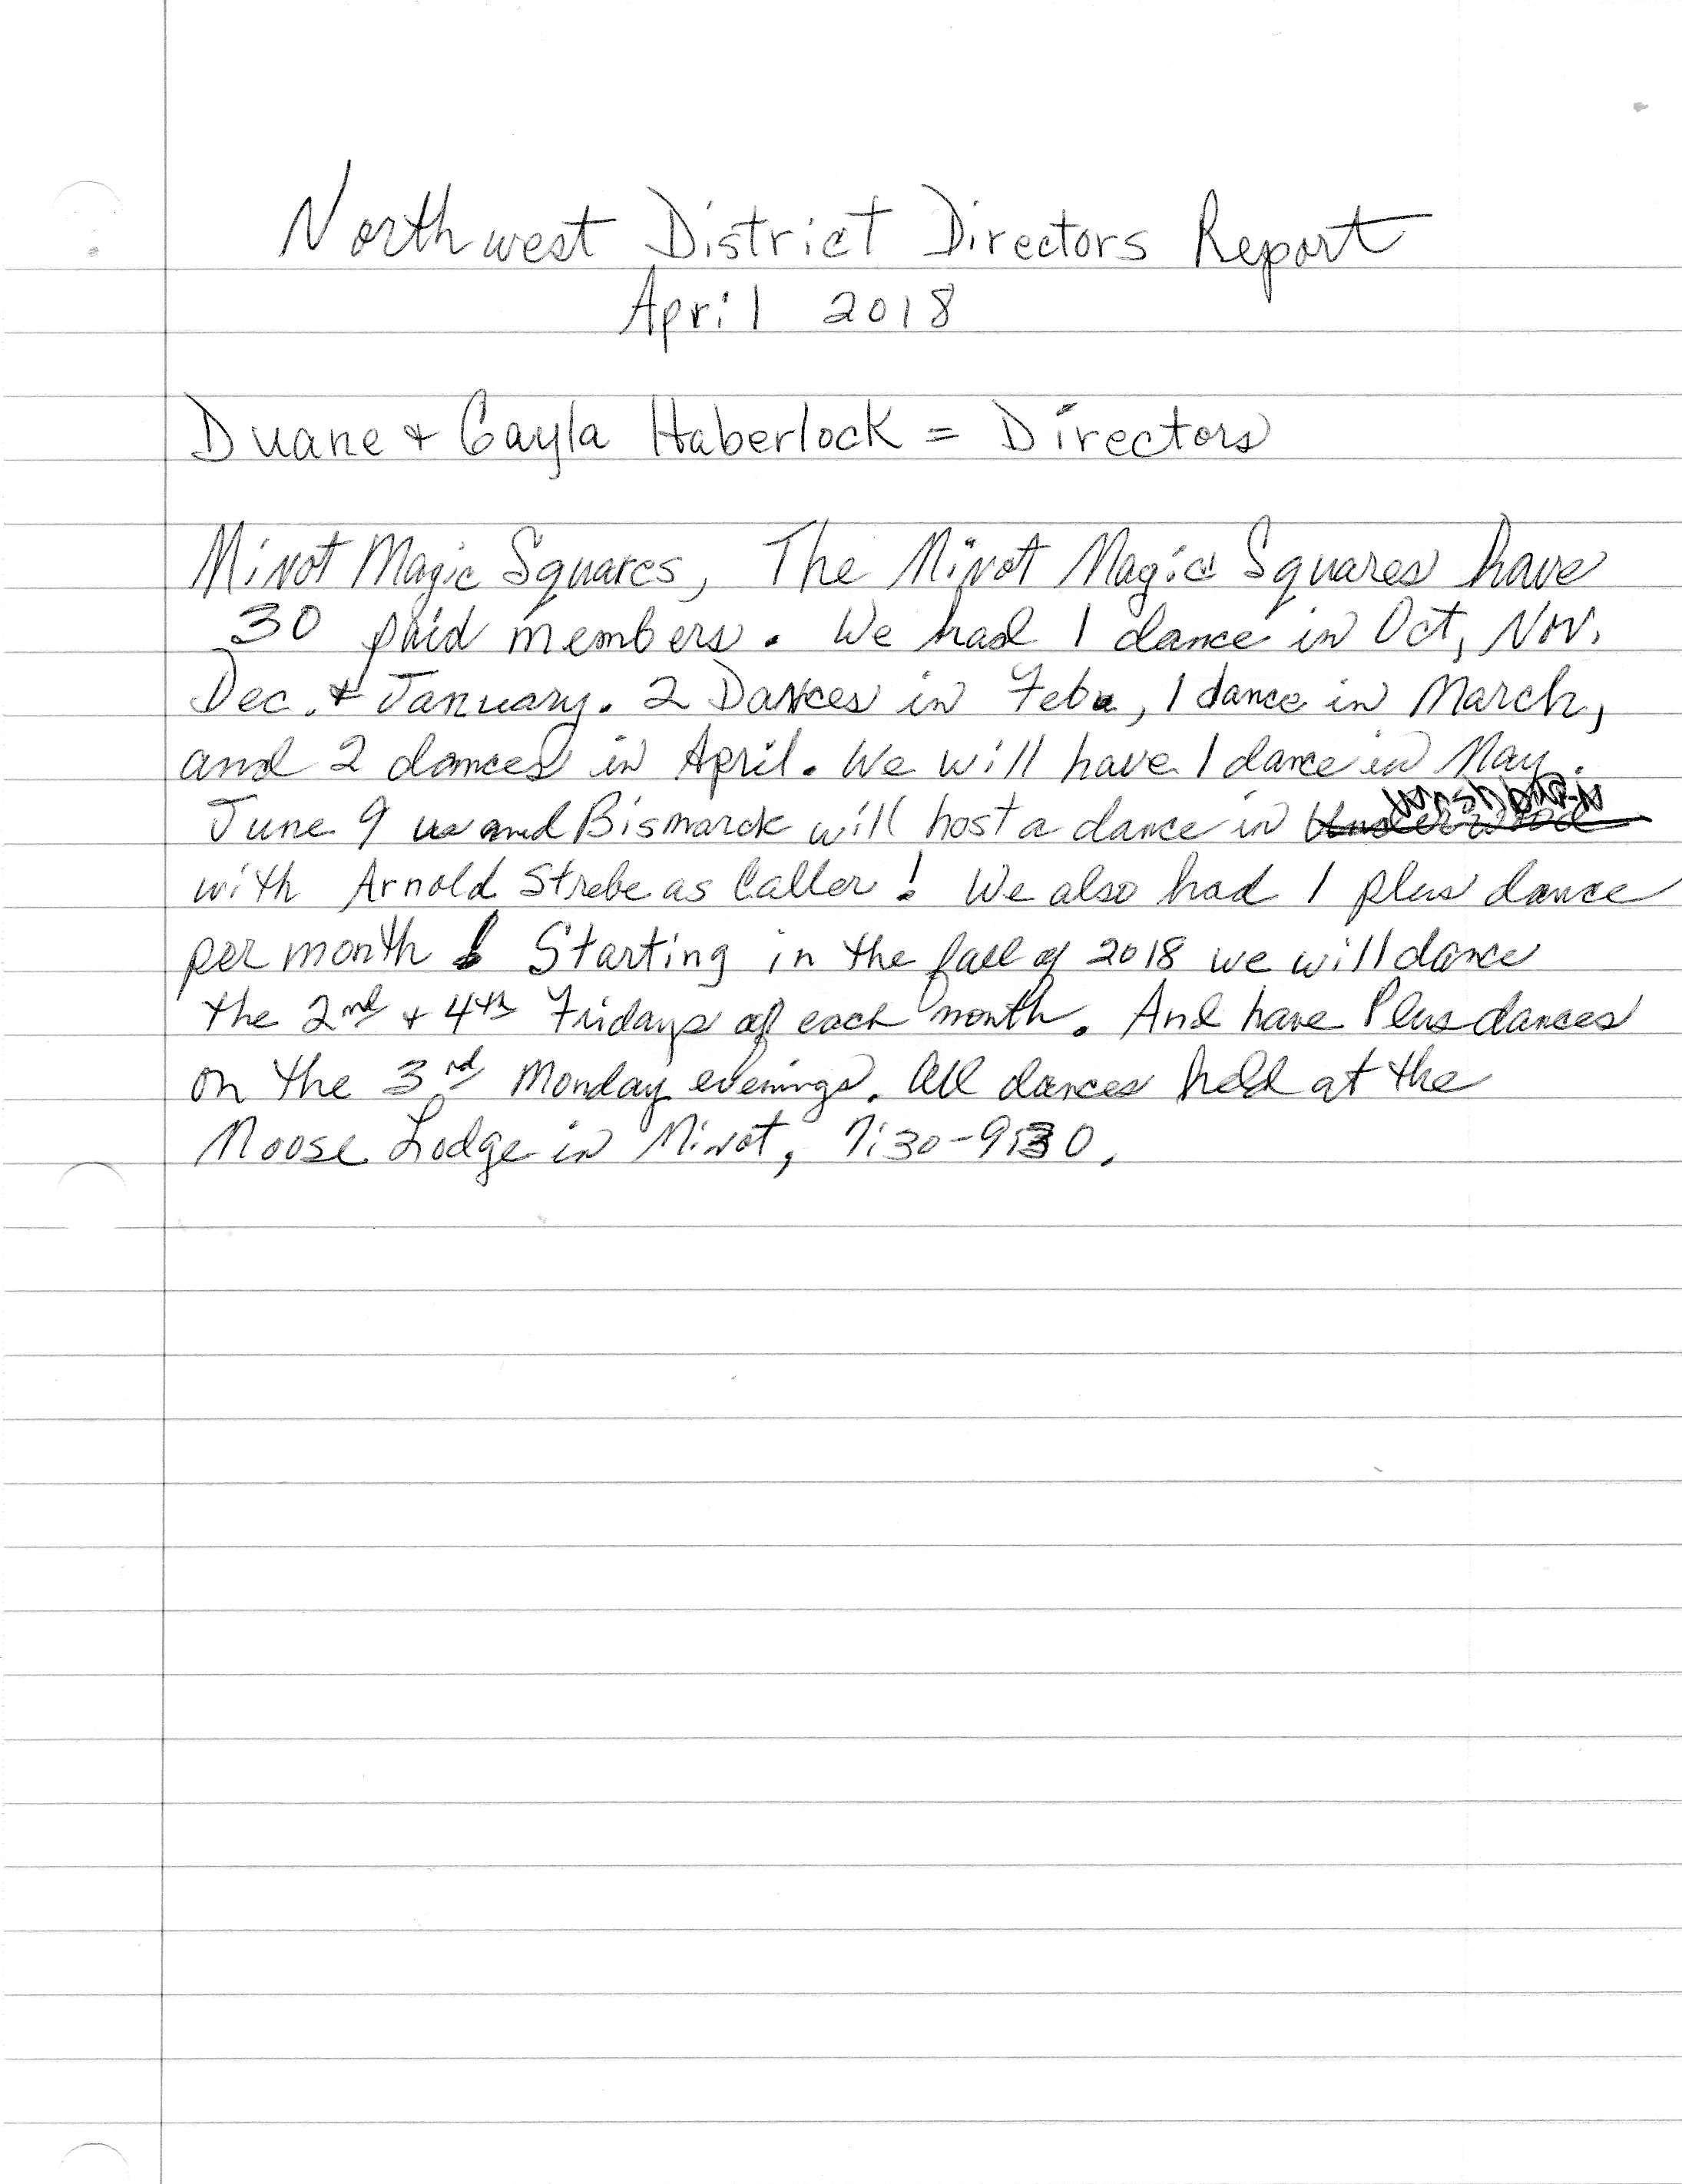 Northwest District Directors Report
April 2018
Duane + Gayla Haberlock = Directors
Minot Magic Squares, The Minot Magic Squares have
30 paid members. We had 1 dance in Oct, Nov.
Dec. + January. 2 Dances in Feb, 1 dance in March,
and 2 dances in April. We will have 1 dance in May.
Washburn
June 9 us and Bismarck will host a dance in Underwood
with Arnold Strebe as Caller! We also had 1 plus dance
per month Starting in the fall of 2018 we will dance
the 2nd + 4th Fridays of each month. And have Plus dances
on the 3rd Monday evenings. All dances held at the
Moose Lodge in Minot, 7:30-9:30.